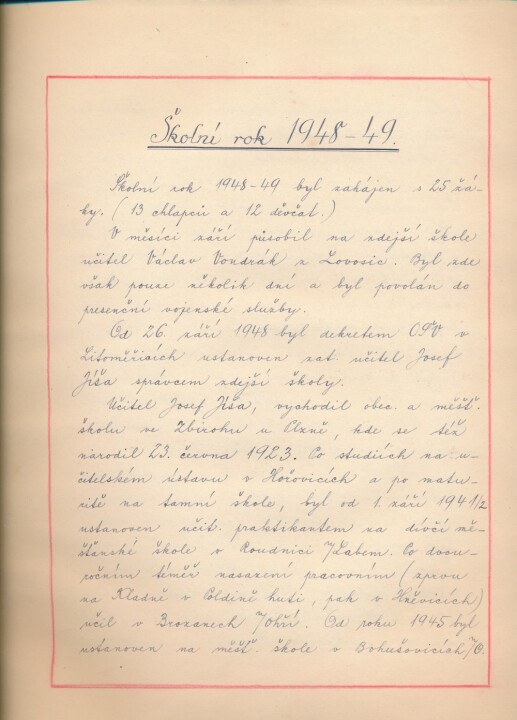 Školní rok 1948-49.
Školní rok 1948-49 byl zahájen s 25 žá-
ky. (13 chlapců a 12 děvčat.)
V měsíci září působil na zdejší škole
učitel Václav Vondrák z Lovosic. Byl zde
však pouze několik dní a byl povolán do
presenční vojenské služby.
Od 26. září 1948 byl dekretem OŠV v
Litoměřicích ustanoven zat. učitel Josef
Jíša správcem zdejší školy.
Učitel Josef Jíša, vychodil obec. a měšť.
školu ve Zbirohu u Plzně, kde se též
narodil 23. června 1923. Po studiích na u-
čitelském ústavu v Hořovicích a po matu-
ritě na tamní škole, byl od 1. září 1941/2
ustanoven učit. praktikantem na dívčí mě-
šťanské škole v Roudnici n/Labem. Po dvou-
ročním téměř nasazení pracovním (zprvu
na Kladně v Poldině huti, pak v Hněvicích)
učil v Brozanech n/Ohří. Od roku 1945 byl
ustanoven na měšť. škole v Bohušovicích n/O.